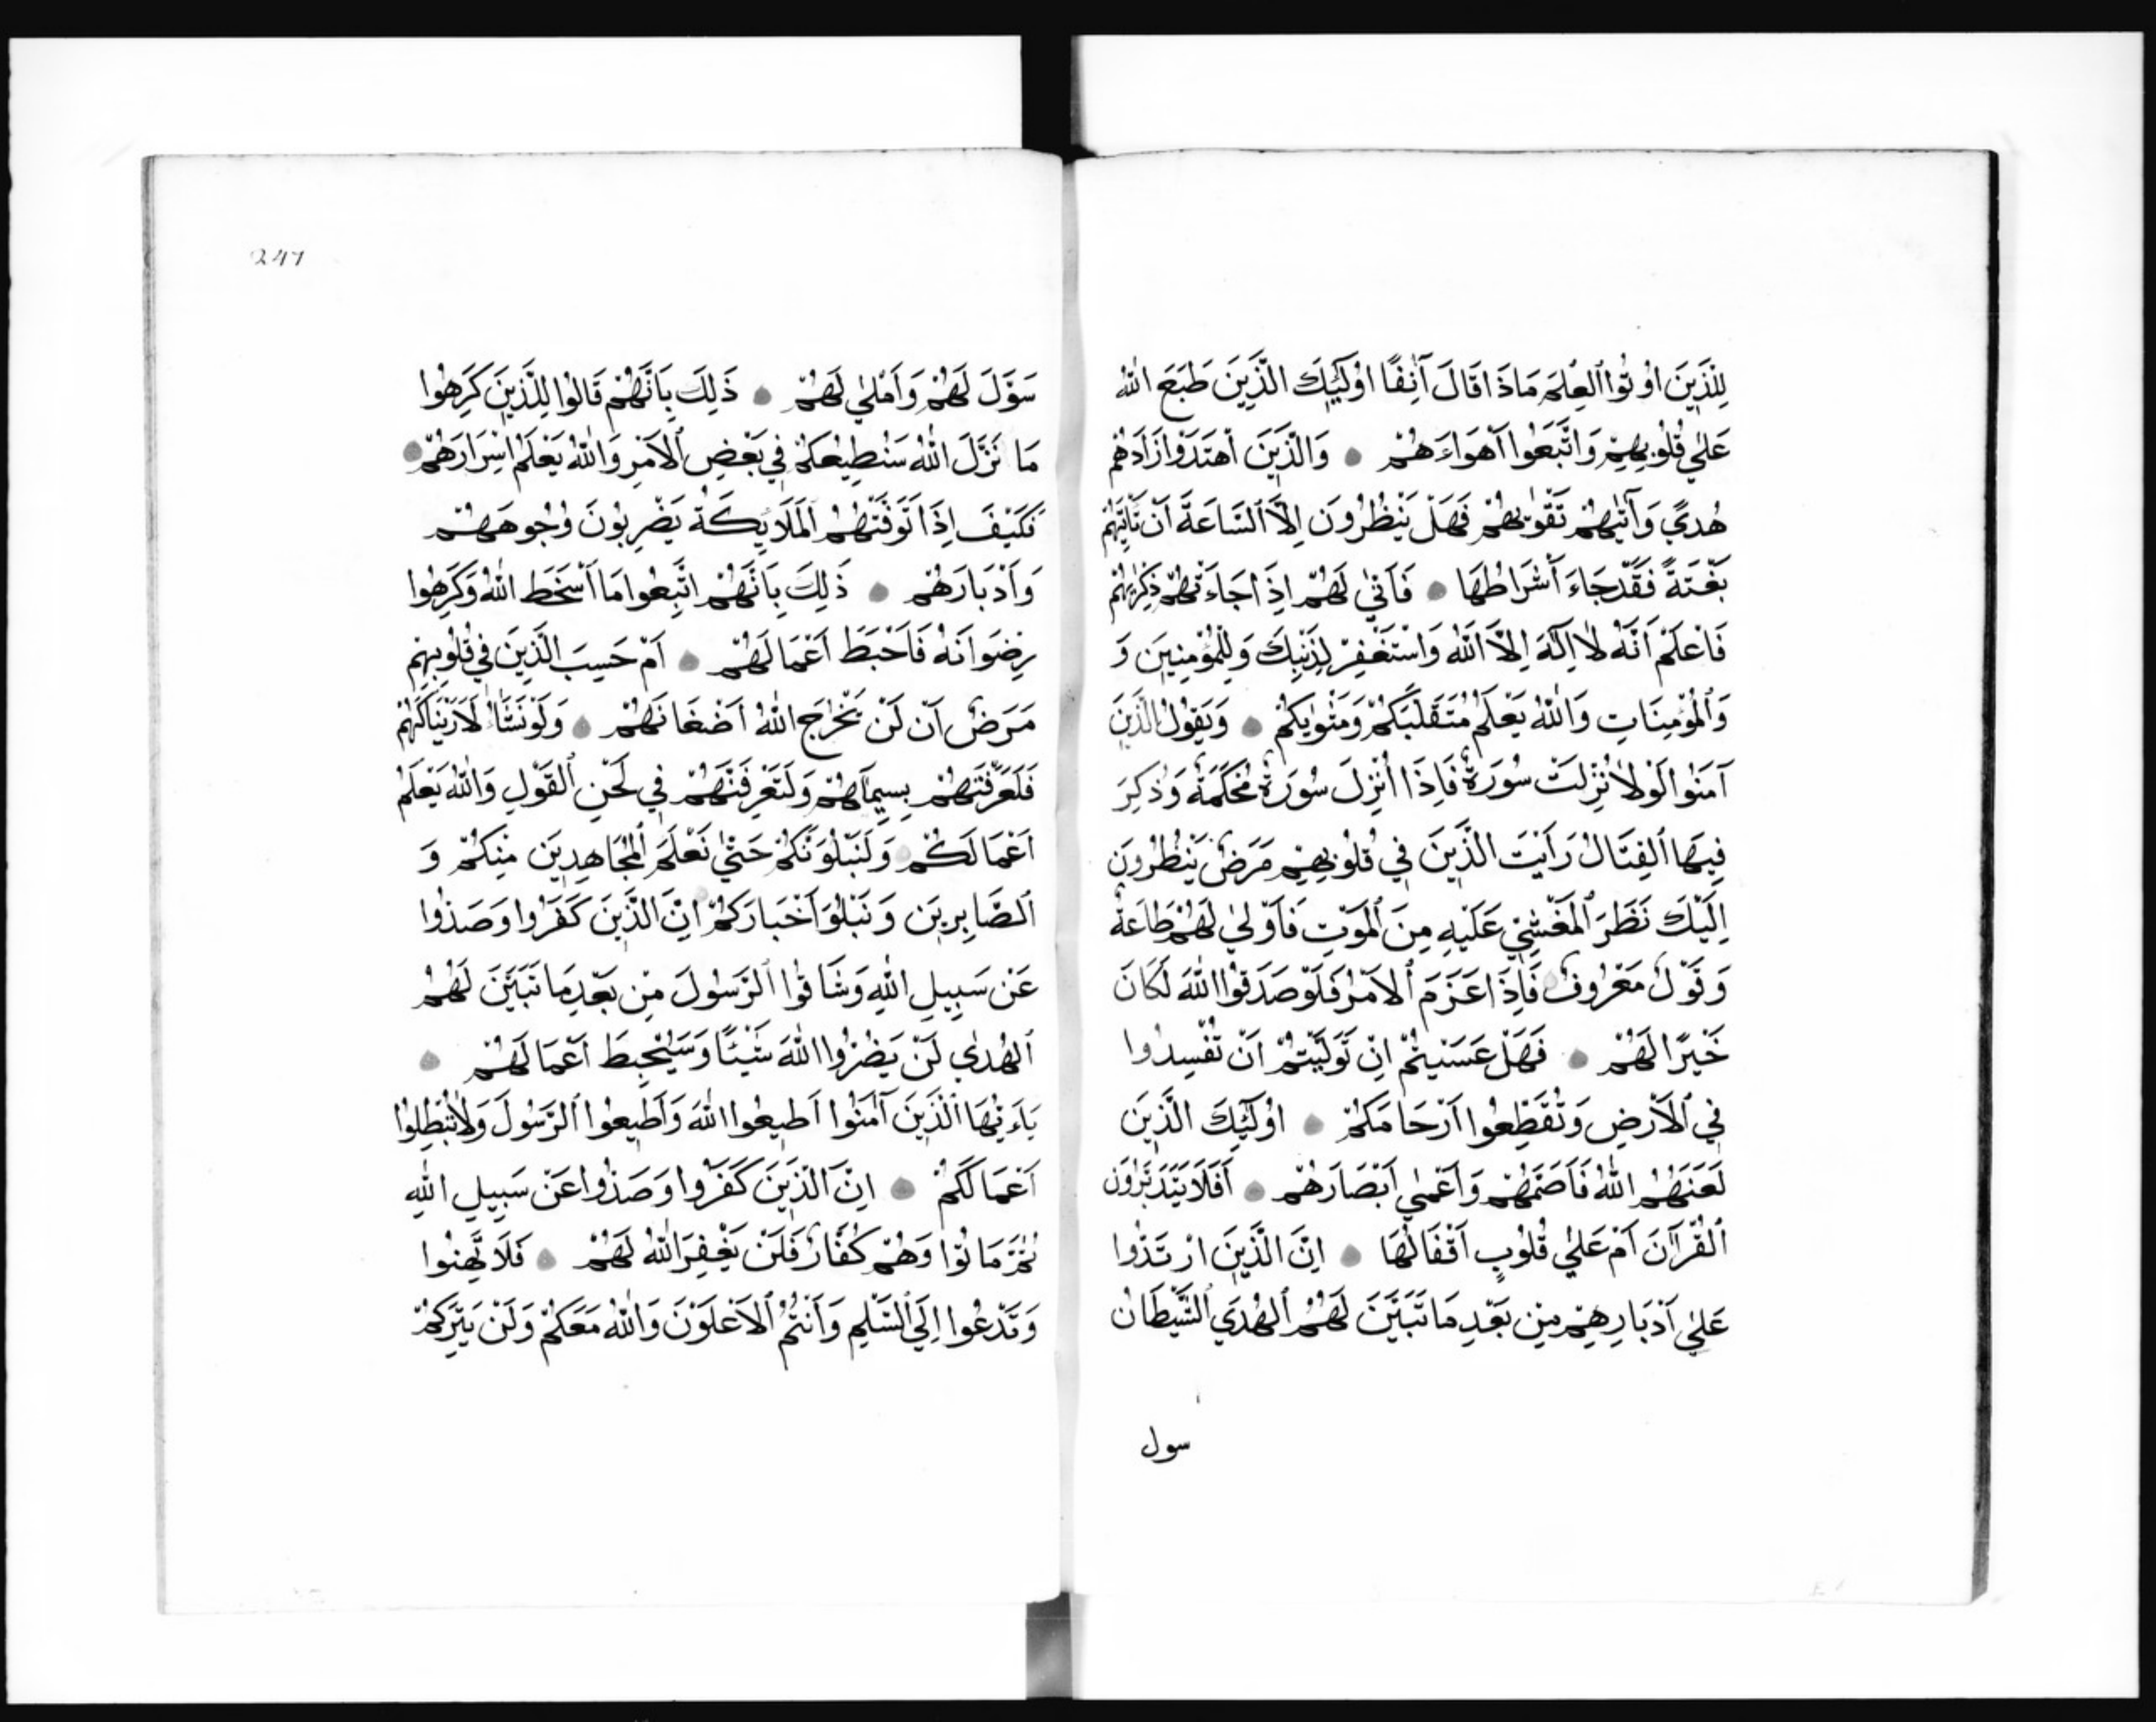 لِلَّذِينَ اُوتُوا ٱلْعِلْمَ مَاذَا قَالَ آنِفًا اُولَٰئِكَ الَّذِينَ طَبَعَ اللّٰهُ
عَلٰي قُلُوبِهِمْ وَاتَّبَعُوا اَهْوَاءَهُمْ ● وَالَّذِينَ اَهْتَدَوْا زَادَهُمْ
هُدًي وَآتٰيهُمْ تَقْوٰيهُمْ فَهَلْ يَنْظُرُونَ اِلَّا ٱلسَّاعَةَ اَنْ تَاْتِيَهُمْ
بَغْتَةً فَقَدْ جَاءَ اَشْرَاطُهَا ● فَاَنّٰي لَهُمْ اِذَا جَاءَتْهُمْ ذِكْرٰيهُمْ
فَاعْلَمْ اَنَّهُ لَا اِلٰهَ اِلَّا اللّٰهُ وَاسْتَغْفِرْ لِذَنْبِكَ وَلِلْمُؤْمِنِينَ وَ
وَٱلْمُؤْمِنَاتِ وَاللّٰهُ يَعْلَمُ مُتَقَلَّبَكُمْ وَمَثْوٰيكُمْ ● وَيَقُولُ الَّذِينَ
آمَنُوا لَوْلَا نُزِّلَتْ سُورَةٌ فَاِذَا اُنْزِلَ سُورَةٌ مُحْكَمَةٌ وَذُكِرَ
فِيهَا ٱلْقِتَالُ رَاَيْتَ الَّذِينَ فِي قُلُوبِهِمْ مَرَضٌ يَنْظُرُونَ
اِلَيْكَ نَظَرَ ٱلْمَغْشِيِّ عَلَيْهِ مِنَ ٱلْمَوْتِ فَاَوْلٰي لَهُمْ طَاعَةٌ
وَقَوْلٌ مَعْرُوفٌ فَاِذَا عَزَمَ ٱلْاَمْرُ فَلَوْ صَدَقُوا اللّٰهَ لَكَانَ
خَيْرًا لَهُمْ ● فَهَلْ عَسَيْتُمْ اِنْ تَوَلَّيْتُمْ اَنْ تُفْسِدُوا
فِي ٱلْاَرْضِ وَتُقَطِّعُوا اَرْحَامَكُمْ ● اُولَٰئِكَ الَّذِينَ
لَعَنَهُمُ اللّٰهُ فَاَصَمَّهُمْ وَاَعْمٰي اَبْصَارَهُمْ ● اَفَلَا يَتَدَبَّرُونَ
ٱلْقُرْآنَ اَمْ عَلٰي قُلُوبٍ اَقْفَالُهَا ● اِنَّ الَّذِينَ ارْتَدُّوا
عَلٰي اَدْبَارِهِمْ مِنْ بَعْدِ مَا تَبَيَّنَ لَهُمُ ٱلْهُدَي ٱلشَّيْطَانُ
سول
247
سَوَّلَ لَهُمْ وَاَمْلٰي لَهُمْ ● ذَلِكَ بِاَنَّهُمْ قَالُوا لِلَّذِينَ كَرِهُوا
مَا نَزَّلَ اللّٰهُ سَنُطِيعُكُمْ فِي بَعْضِ ٱلْاَمْرِ وَاللّٰهُ يَعْلَمُ اِسْرَارَهُمْ ●
فَكَيْفَ اِذَا تَوَفَّتْهُمُ ٱلْمَلَائِكَةُ يَضْرِبُونَ وُجُوهَهُمْ
وَاَدْبَارَهُمْ ● ذَلِكَ بِاَنَّهُمُ اتَّبِعُوا مَا اَسْخَطَ اللّٰهُ وَكَرِهُوا
رِضْوَانَهُ فَاَحْبَطَ اَعْمَالَهُمْ ● اَمْ حَسِبَ الَّذِينَ فِي قُلُوبِهِمْ
مَرَضٌ اَنْ لَنْ يُخْرِجَ اللّٰهُ اَضْغَانَهُمْ ● وَلَوْ نَشَاءُ لَاَرَيْنَاكَهُمْ
فَلَعَرَفْتَهُمْ بِسِيمَاهُمْ وَلَتَعْرِفَنَّهُمْ فِي لَحْنِ ٱلْقَوْلِ وَاللّٰهُ يَعْلَمُ
اَعْمَالَكُمْ ● وَلَنَبْلُوَنَّكُمْ حَتّٰي نَعْلَمَ ٱلْمُجَاهِدِينَ مِنْكُمْ وَ
ٱلصَّابِرِينَ وَنَبْلُوَ اَخْبَارَكُمْ ● اِنَّ الَّذِينَ كَفَرُوا وَصَدُّوا
عَنْ سَبِيلِ اللّٰهِ وَشَاقُّوا ٱلرَّسُولَ مِنْ بَعْدِ مَا تَبَيَّنَ لَهُمُ
ٱلْهُدٰي لَنْ يَضُرُّوا اللّٰهَ شَيْئًا وَسَيُحْبِطَ اَعْمَالَهُمْ ●
يَاءَيُّهَا ٱلَّذِينَ آمَنُوا اَطِيعُوا اللّٰهَ وَاَطِيعُوا ٱلرَّسُولَ وَلَا تُبْطِلُوا
اَعْمَالَكُمْ ● اِنَّ الَّذِينَ كَفَرُوا وَصَدُّوا عَنْ سَبِيلِ اللّٰهِ
ثُمَّ مَاتُوا وَهُمْ كُفَّارٌ فَلَنْ يَغْفِرَ اللّٰهُ لَهُمْ ● فَلَا تَهِنُوا
وَتَدْعُوا اِلَي ٱلسَّلْمِ وَاَنْتُمُ ٱلْاَعْلَوْنَ وَاللّٰهُ مَعَكُمْ وَلَنْ يَتِرَكُمْ